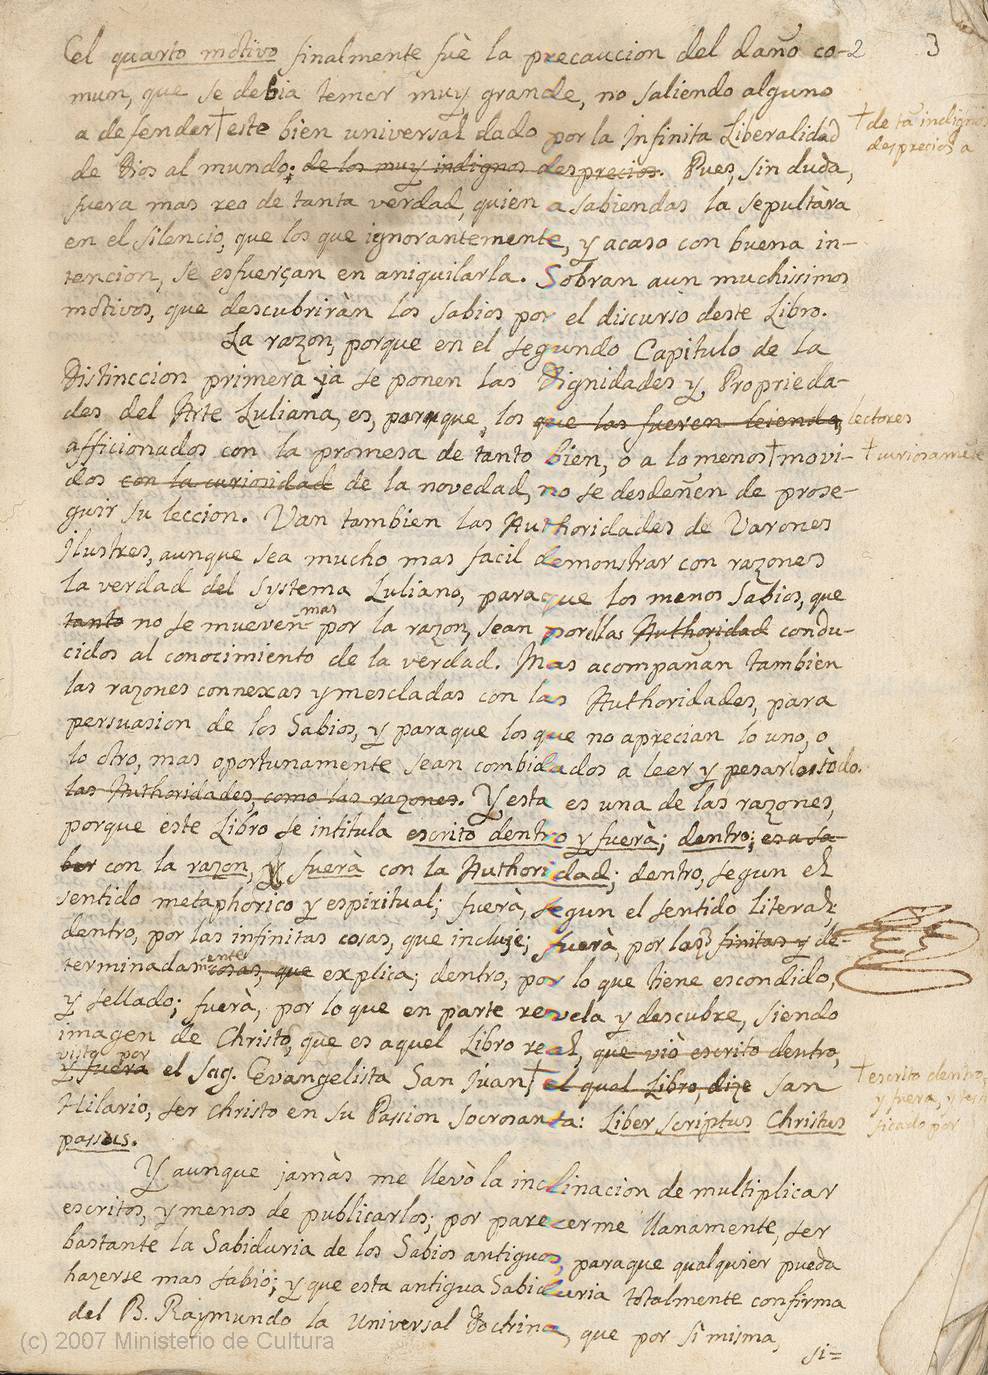 El quarto motivo finalmente fuè la precaucion del daño co-2 3
mun, que se debia temer muy grande, no saliendo alguno
a defender† este bien universal dado por la Infinita Liberalidad †de tã indignos
de Dios al mundo; de los muy indignos desprecios. Pues, sin duda, desprecios a
fuera mas reo de tanta verdad, quien a sabiendas la sepultàra
en el silencio, que los que ignorantemente, y acaso con buena in-
tencion, se esfuerçan en aniquilarla. Sobran aun muchissimos
motivos, que descubriràn los sabios por el discurso deste Libro.
La razon, porque en el segundo Capitulo de la
Distinccion primera ja se ponen las Dignidades y Proprieda-
des del Arte Luliana, es, paraque, los que las fueren leiendo, lectores
afficionados con la promesa de tanto bien, o a lo menos† movi- †curiosamẽte
dos con la curiosidad de la novedad, no se desdeñen de prose-
guir su leccion. Van tambien las Authoridades de Varones
Ilustres, aunque sea mucho mas facil demonstrar con razones
la verdad del systema Luliano, paraque los menos sabios, que
tanto no se mueven mas por la razon, sean por las Authoridad condu-
cidos al conocimiento de la verdad. Mas acompañan tambien
las razones connexas y mescladas con las Authoridades, para
persuasion de los Sabios, y paraque los que no aprecian lo uno, o
lo otro, mas oportunamente sean combidados a leer y pesarlo tòdo.
las Authoridades, como las razones. Y esta es una de las razones,
porque este Libro se intitula escrito dentro y fuerà; dentro; es a sa-
ber con la razon, y fuerà con la Authoridad; dentro, segun el
sentido metaphorico y espiritual; fuerà, segun el sentido literal;
dentro, por las infinitas cosas, que incluje; fuerà, por las finitas y de-
terminadas mente cosas, que explica; dentro, por lo que tiene escondido,
y sellado; fuerà, por lo que en parte revela y descubre, siendo
imagen de Christo, que es aquel Libro real, que viò escrito dentro,
visto por
y fuera el Sag. Evangelista San Juan† el qual Libro, dize san †escrito dentro,
Hilario, ser Christo en su Passion socrosanta: Liber scriptus Christus y fuera, y testi
passus. ficado por
Y aunque jamàs me llevò la inclinacion de multiplicar
escritos, y menos de publicarlos; por parecerme llanamente, ser
bastante la Sabiduria de los Sabios antiguos, paraque qualquier pueda
hazerse mas sabio; y que esta antigua Sabiduria totalmente confirma
del B. Raymundo la Universal Doctrina, que por si misma,
si=
(c) 2007 Ministerio de Cultura